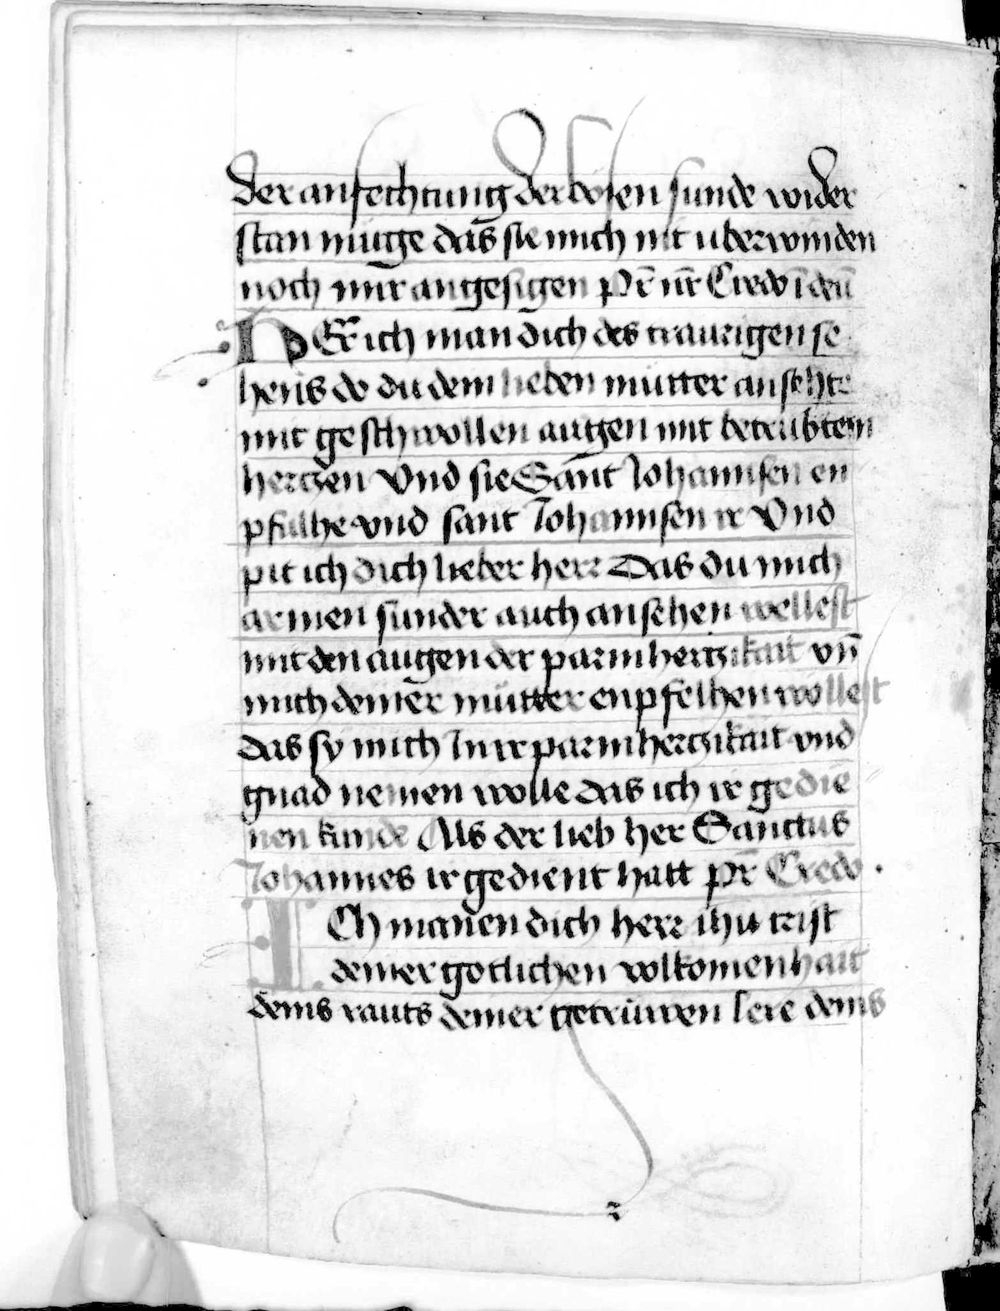 der anfechtung der bösen sunde wider
stan muge das sie mich nit uberwinden
noch mir angesigen Pr̄ nr̄ Credo
HEr ich man dich des traurigen se
hens de du dein lieben mutter ansehte
mit geschwollen augen mit betrubtem
herczen Vnd sie Sant Johannsen en
pfulhe vnd sant Johannsen ir Vnd
pit ich dich lieber herr Das du mich
armen sunder auch ansehen wellest
mit den augen der parmherczikait vn̄
mich deiner mutter enpfelhen wöllest
das sy mich In ir parmherczikait vnd
gnad nemen wolle das ich ir gedie
nen kunde Als der lieb her Sanctus
Johannes ir gedient hatt Pr̄ Credo .
ICh manen dich herr ihu crist
deiner gotlichen volkomenhait
deins rauts deiner getruwen lere deins